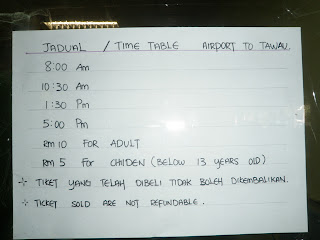 JADUAL / TIME TABLE AIRPORT TO TAWAU.
8:00 Am
10:30 Am
1:30 Pm
5:00 Pm
RM 10 FOR ADULT
RM 5 For CHIDEN (BELOW 13 YEARS OLD)
* TIKET YANG TELAH DIBELI TIDAK BOLEH DIKEMBALIKAN.
* TICKET SOLD ARE NOT REFUNDABLE.